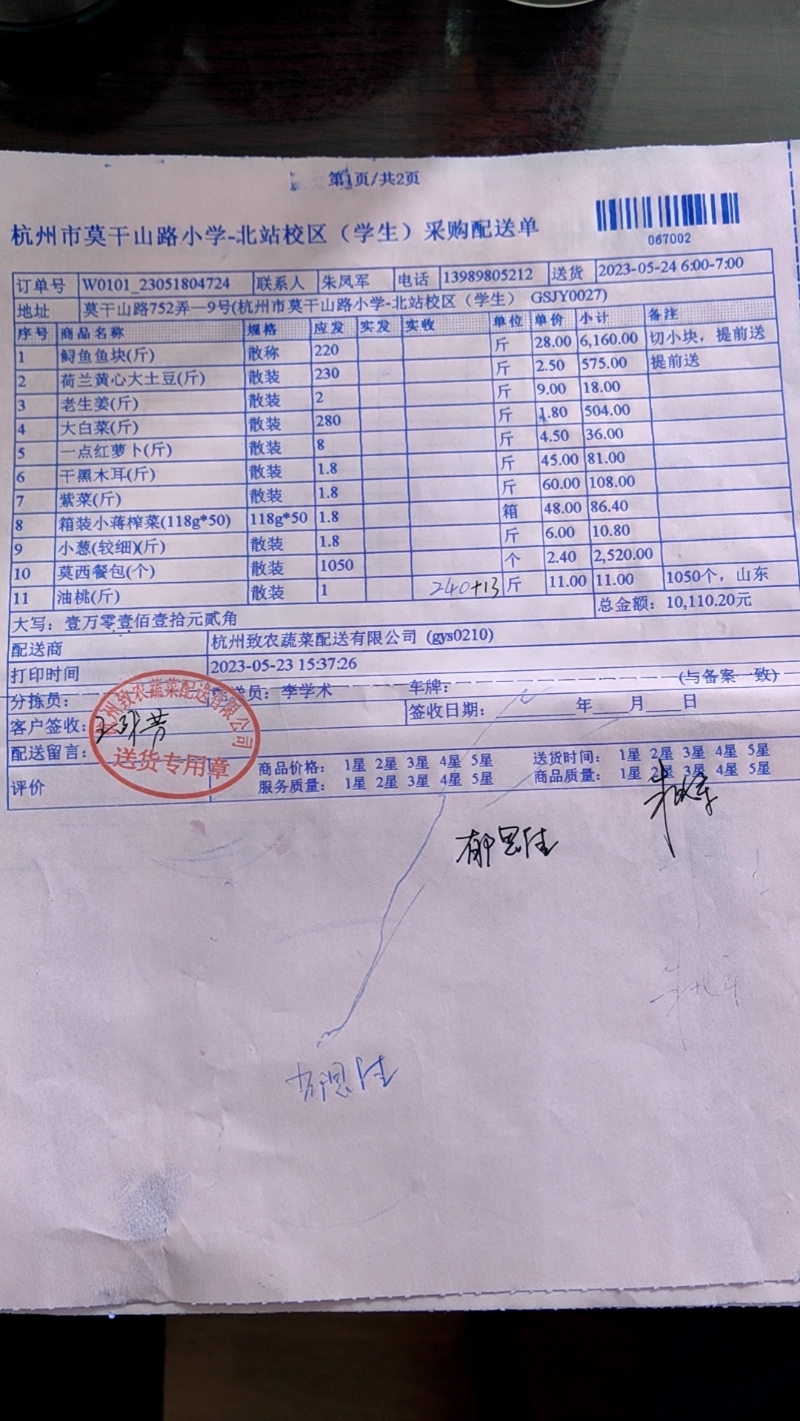 第1页/共2页
杭州市莫干山路小学-北站校区（学生）采购配送单
067002
订单号 W0101_23051804724 联系人 朱凤军 电话 13989805212 送货 2023-05-24 6:00-7:00
地址 莫干山路752弄一9号(杭州市莫干山路小学-北站校区（学生） GSJY0027)
序号 商品名称 规格 应发 实发 实收 单位 单价 小计 备注
1 鲟鱼鱼块(斤) 散称 220 斤 28.00 6,160.00 切小块，提前送
2 荷兰黄心大土豆(斤) 散装 230 斤 2.50 575.00 提前送
3 老生姜(斤) 散装 2 斤 9.00 18.00
4 大白菜(斤) 散装 280 斤 1.80 504.00
5 一点红萝卜(斤) 散装 8 斤 4.50 36.00
6 干黑木耳(斤) 散装 1.8 斤 45.00 81.00
7 紫菜(斤) 散装 1.8 斤 60.00 108.00
8 箱装小蒋榨菜(118g*50) 118g*50 1.8 箱 48.00 86.40
9 小葱(较细)(斤) 散装 1.8 斤 6.00 10.80
10 莫西餐包(个) 散装 1050 个 2.40 2,520.00
11 油桃(斤) 散装 1 240+13 斤 11.00 11.00 1050个，山东
大写：壹万零壹佰壹拾元贰角 总金额：10,110.20元
配送商 杭州致农蔬菜配送有限公司 (gys0210)
打印时间 2023-05-23 15:37:26
分拣员： 员：李学术 车牌： (与备案一致)
客户签收： 签收日期： 年 月 日
配送留言：
杭州致农蔬菜配送有限公司
送货专用章
评价 商品价格： 1星 2星 3星 4星 5星 送货时间： 1星 2星 3星 4星 5星
服务质量： 1星 2星 3星 4星 5星 商品质量： 1星 2星 3星 4星 5星
郁思佳